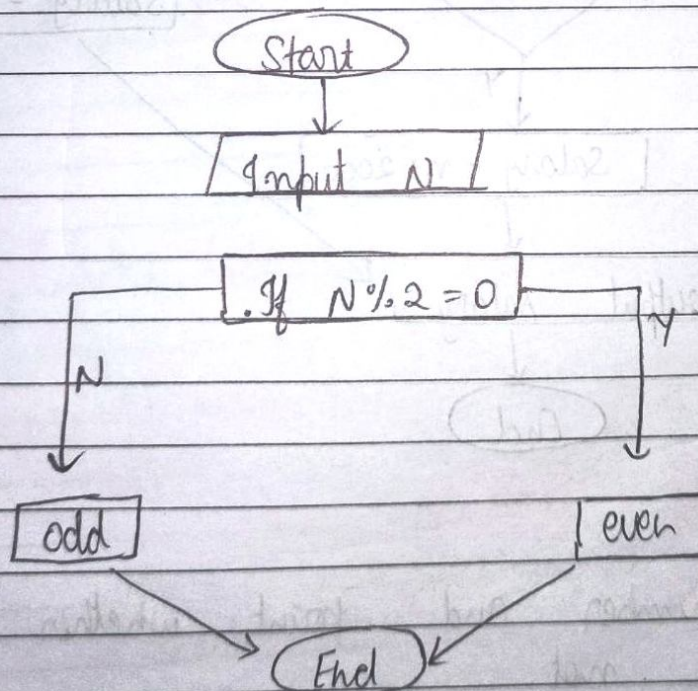 Start
Input N
.If N%2 = 0
N
Y
odd
even
End